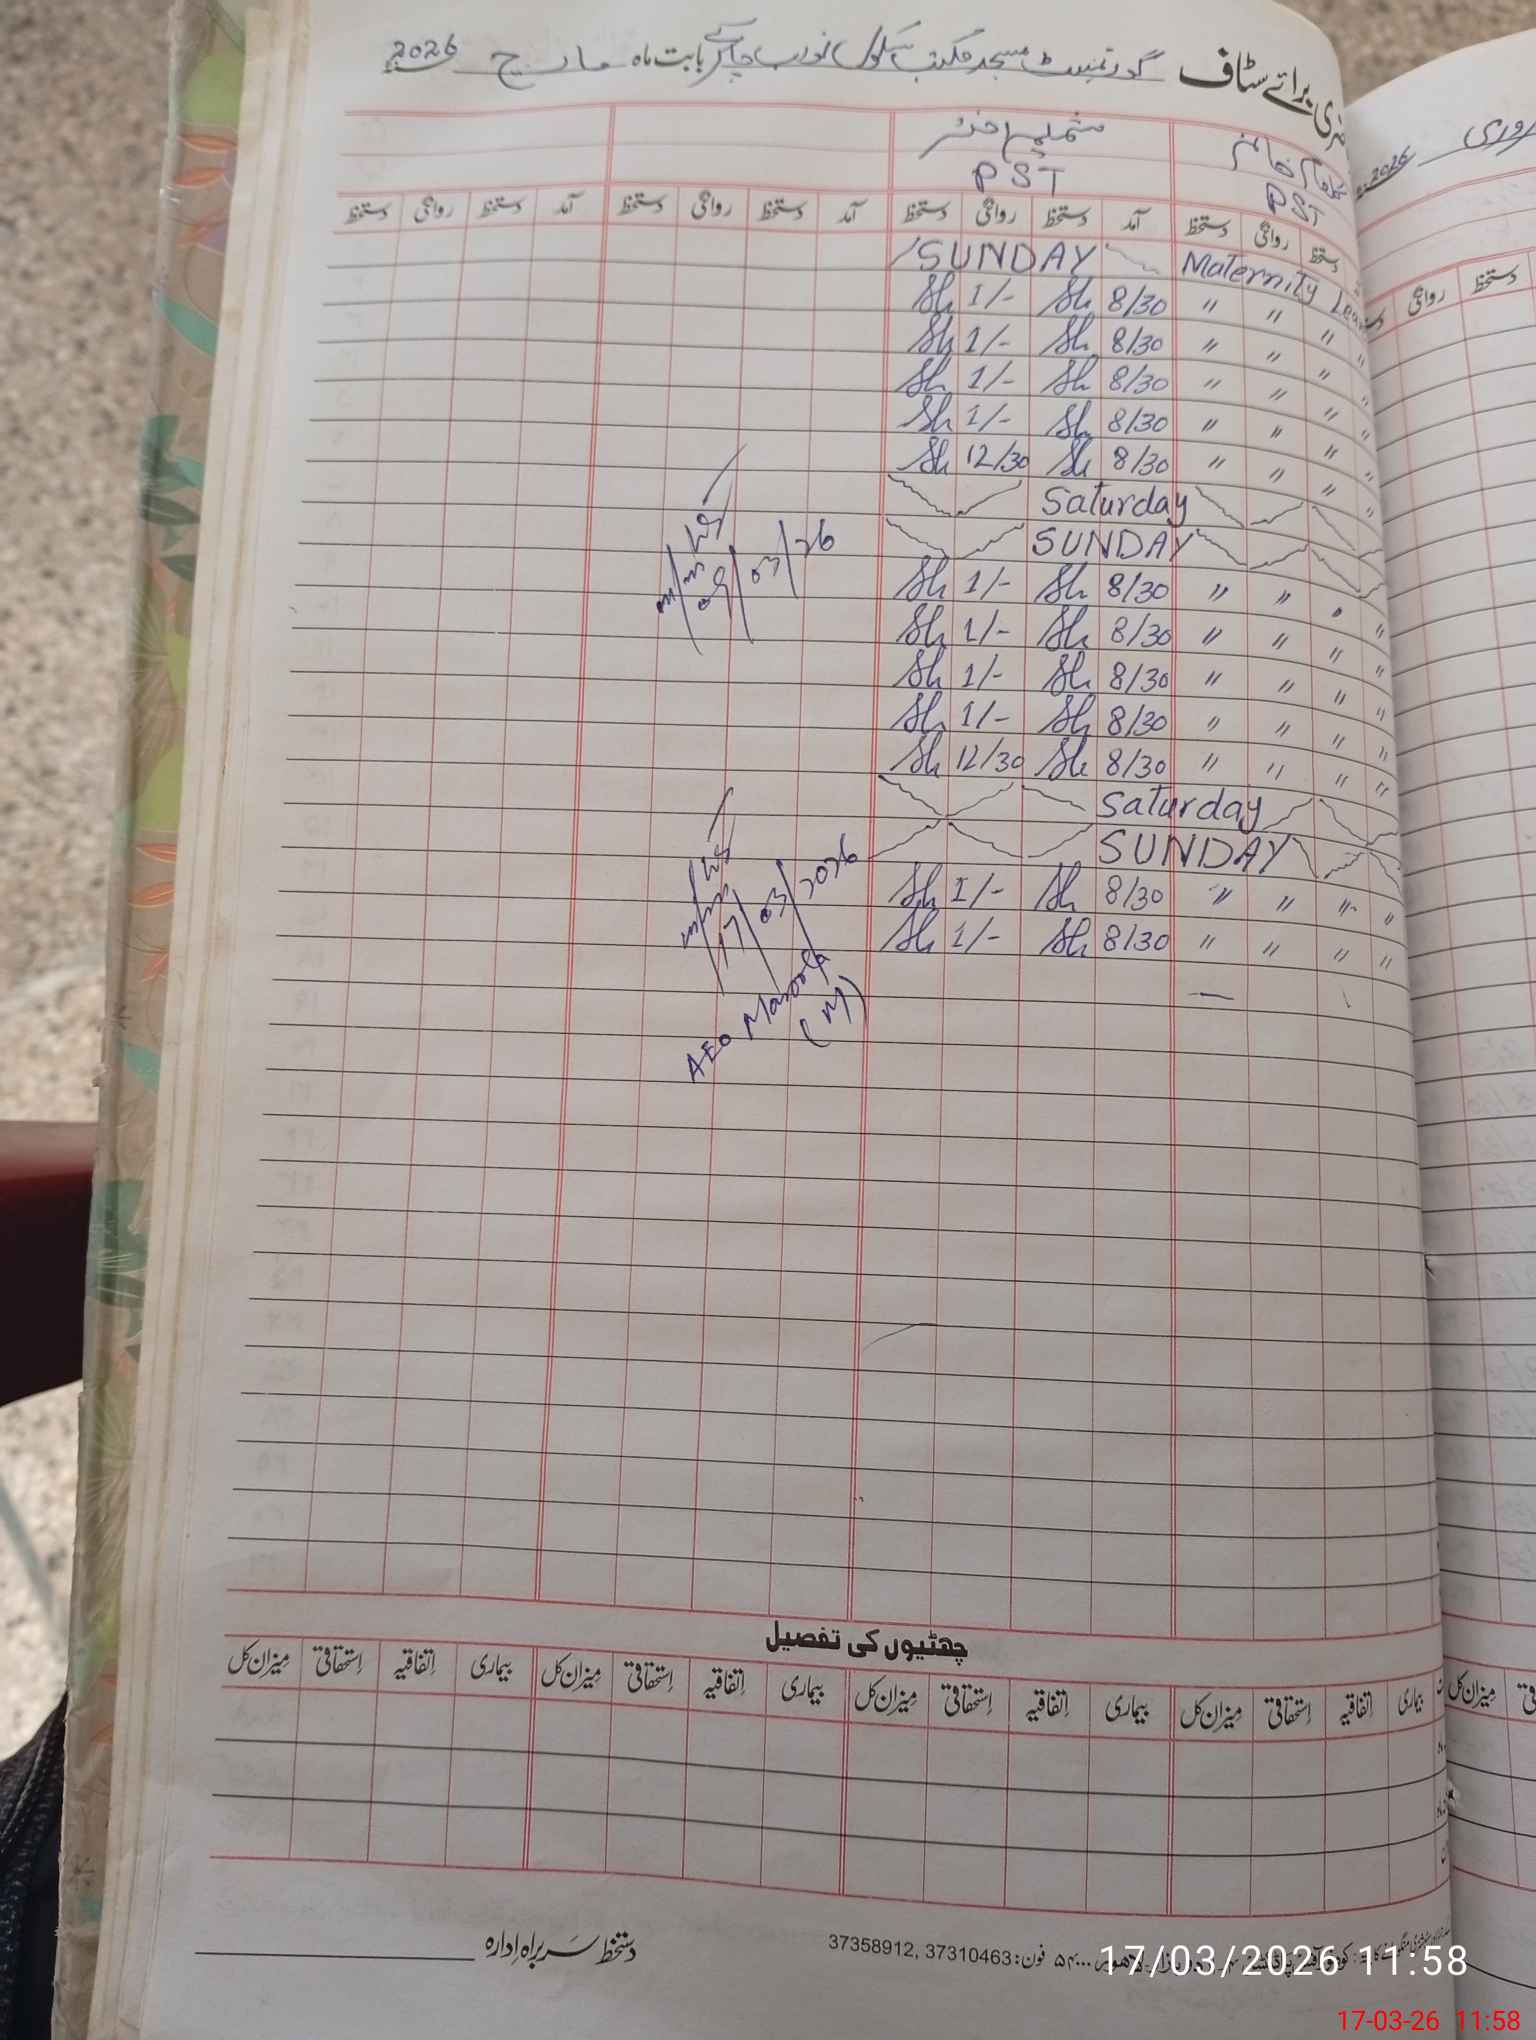 حاضری برائے سٹاف گورنمنٹ مسجد مکتب سکول نواب چاکر کے بابت ماہ مارچ 2026
PST
PST
دستخط روانگی دستخط آمد دستخط روانگی دستخط آمد دستخط روانگی دستخط آمد دستخط روانگی دستخط
SUNDAY Maternity Leave
Sh 1/- Sh 8/30 " " " "
Sh 1/- Sh 8/30 " " " "
Sh 1/- Sh 8/30 " " " "
Sh 1/- Sh 8/30 " " " "
Sh 12/30 Sh 8/30 " " " "
Saturday
SUNDAY
Sh 1/- Sh 8/30 " " " "
Sh 1/- Sh 8/30 " " " "
Sh 1/- Sh 8/30 " " " "
Sh 1/- Sh 8/30 " " " "
Sh 12/30 Sh 8/30 " " " "
Saturday
SUNDAY
Sh 1/- Sh 8/30 " " " "
Sh 1/- Sh 8/30 " " " "
09/03/26
17/03/2026
AEO
(M)
چھٹیوں کی تفصیل
میزان کل اِستحقاقی اِتفاقیہ بیماری میزان کل اِستحقاقی اِتفاقیہ بیماری میزان کل اِستحقاقی اِتفاقیہ بیماری میزان کل اِستحقاقی اِتفاقیہ بیماری
دستخط سربراہ اِدارہ
فون: 37358912, 37310463
2026
دستخط روانگی دستخط
میزان کل
17/03/2026 11:58
17-03-26 11:58